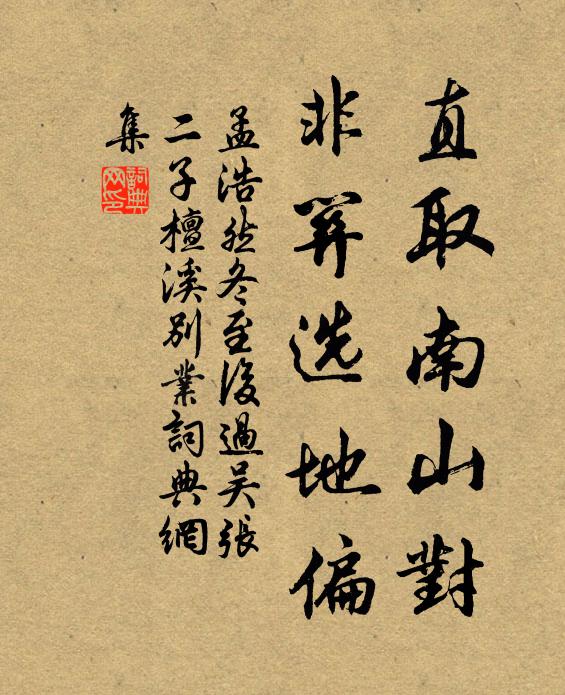 直取南山對
非關选地偏
孟浩然冬至後過吴張
二子檀溪别業詞典網
集
詞典网印